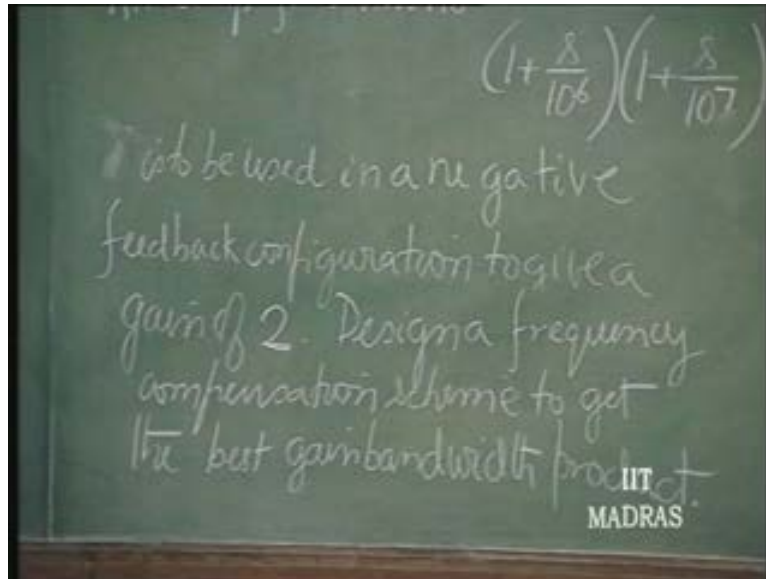 (1+s/10⁶)(1+s/10⁷)
is to be used in a negative
feedback configuration to give a
gain of 2. Design a frequency
compensation scheme to get
the best gain bandwidth product.
IIT
MADRAS